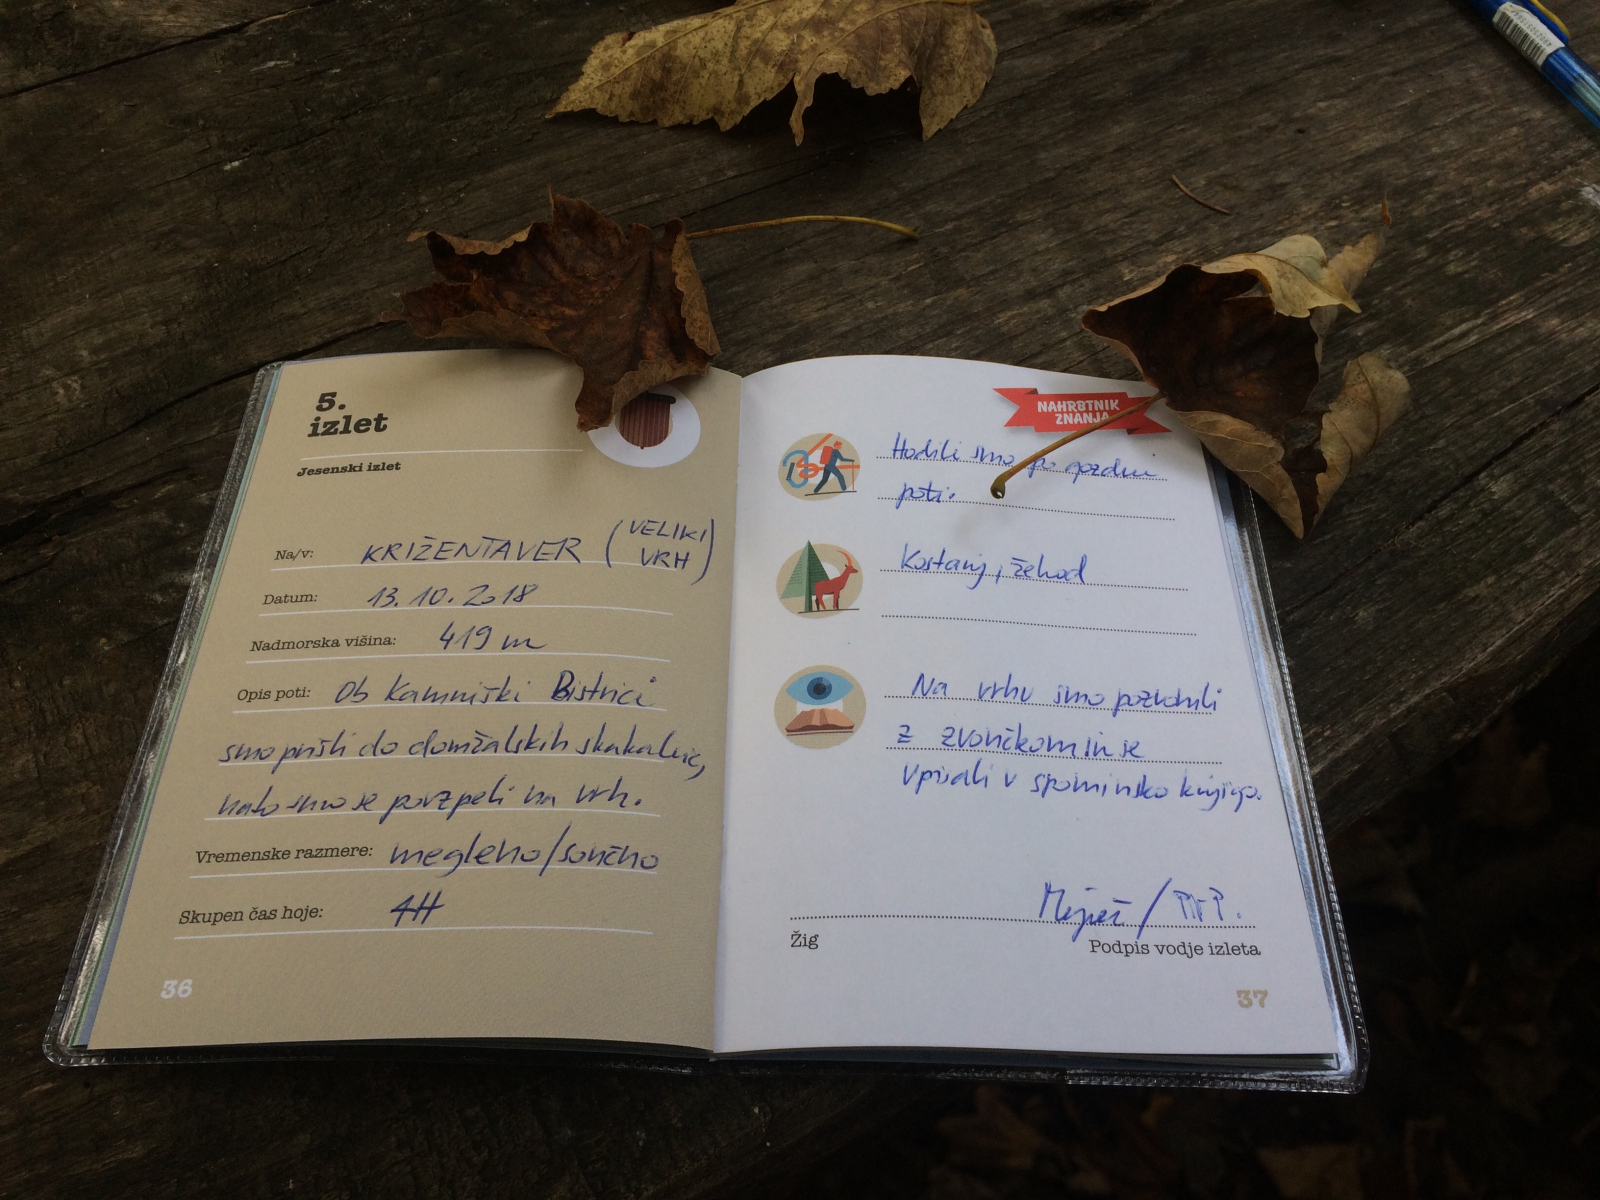 5.
izlet
Jesenski izlet
Na/v: KRIŽENTAVER (VELIKI VRH)
Datum: 13. 10. 2018
Nadmorska višina: 419 m
Opis poti: Ob Kamniški Bistrici
smo prišli do domžalskih skakalnic,
nato smo se povzpeli na vrh.
Vremenske razmere: megleno/sončno
Skupen čas hoje: 4H
36
NAHRBTNIK
ZNANJA
Hodili smo po gozdni
poti.
Kostanj, želod
Na vrhu smo pozvonili
z zvončkom in se
vpisali v spominsko knjigo.
Žig
Podpis vodje izleta
37